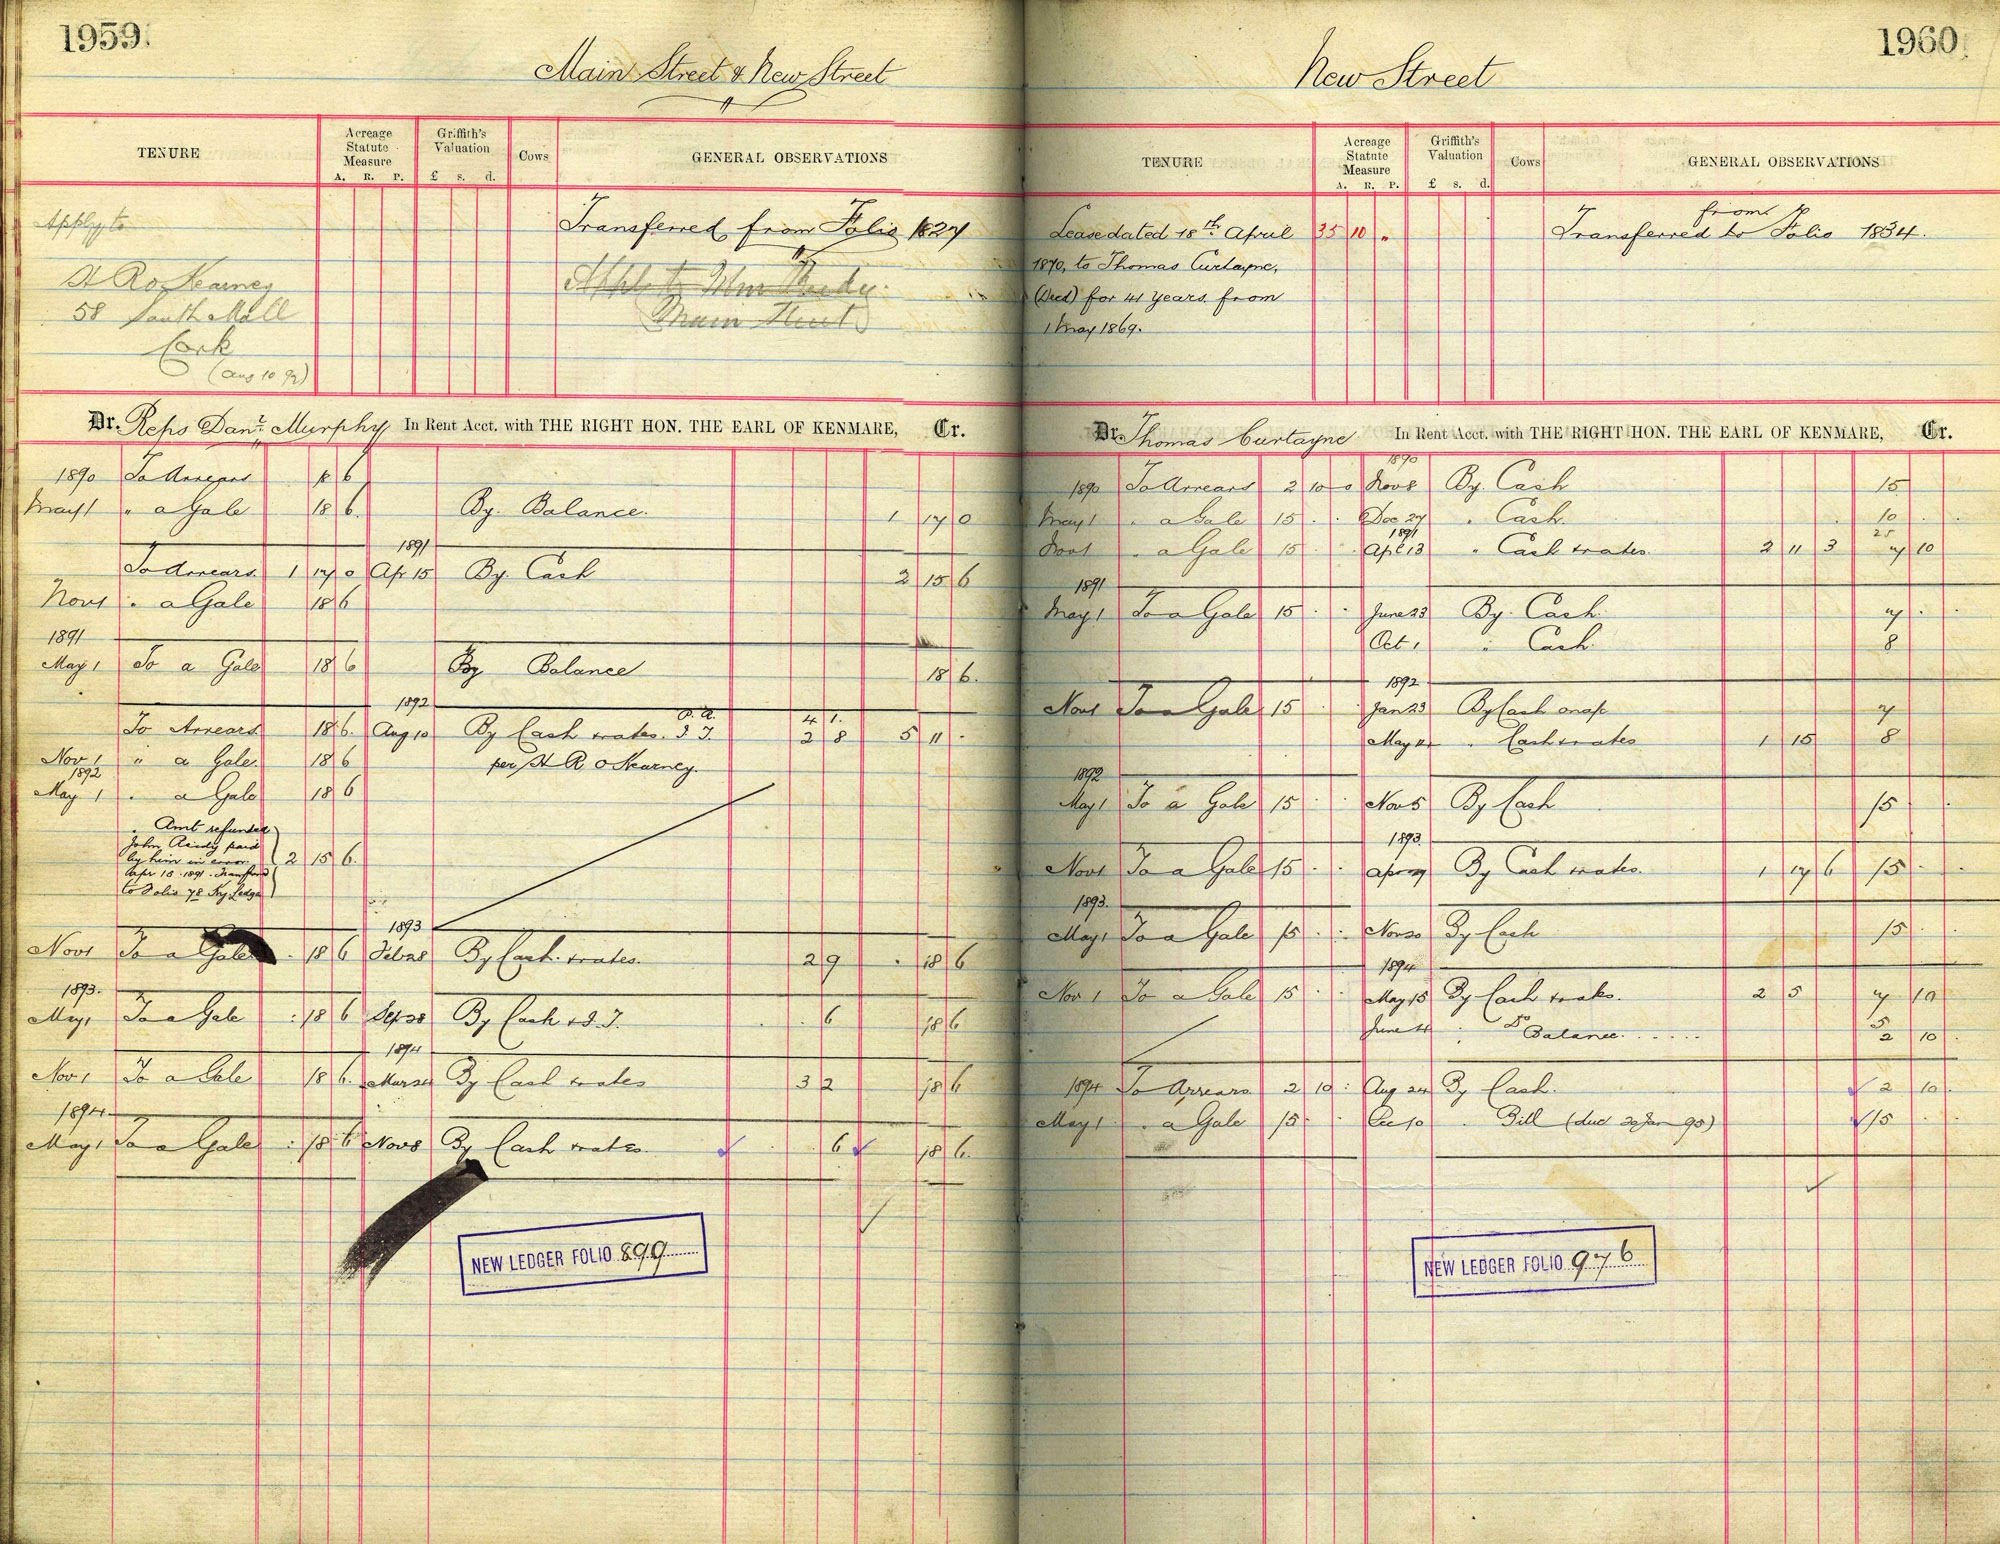 1959
Main Street & New Street
TENURE
Acreage Statute Measure
A. R. P.
Griffith's Valuation
£ s. d.
Cows
GENERAL OBSERVATIONS
Apply to
58 South Mall
Cork
(Aug 10 92)
Transferred from Folio 1827
Main Street
Dr. Reps Danl. Murphy In Rent Acct. with THE RIGHT HON. THE EARL OF KENMARE, Cr.
1890 To Arrears 18 6
May 1 " a Gale 18 6 By Balance. 1 17 0
1891
To Arrears 1 17 0 Apr 15 By Cash 2 15 6
Nov 1 " a Gale 18 6
1891
May 1 To a Gale 18 6 By Balance 18 6
1892
To Arrears 18 6 Aug 10 By Cash & rates. P. R. 4 1. I. T. 2 8 5 11 -
Nov 1 " a Gale 18 6 per H R O'Kearney.
1892
May 1 " a Gale 18 6
" Amt refunded
John Reidy paid
by him in error 2 15 6
Apr 15 1891. Transferred
to Folio 78 Ky Ledger
1893
Nov 1 To a Gale 18 6 Feb 28 By Cash & rates. 2 9 18 6
1893.
May 1 To a Gale 18 6 Sep 28 By Cash & I. T. 6 18 6
1894
Nov 1 To a Gale 18 6 Mar 24 By Cash & rates 3 2 18 6
1894
May 1 To a Gale 18 6 Nov 8 By Cash & rates. 6 18 6
NEW LEDGER FOLIO 899
1960
New Street
TENURE
Acreage Statute Measure
A. R. P.
Griffith's Valuation
£ s. d.
Cows
GENERAL OBSERVATIONS
Lease dated 18th April 35 10 "
1870, to Thomas Curtayne,
(Decd) for 41 years from
1 May 1869.
from
Transferred to Folio 1834.
Dr. Thomas Curtayne In Rent Acct. with THE RIGHT HON. THE EARL OF KENMARE, Cr.
1890
1890 To Arrears 2 10 0 Nov 8 By Cash 15
May 1 " a Gale 15 Dec 27 " Cash. 10
1891 25
Nov 1 " a Gale 15 Apl 13 " Cash & rates. 2 11 3 7 10
1891
May 1 To a Gale 15 June 23 By Cash 7
Oct 1 " Cash. 8
1892
Nov 1 To a Gale 15 Jan 23 By Cash on a/c 7
May 4 " Cash & rates 1 15 8
1892
May 1 To a Gale 15 Nov 5 By Cash 15
1893
Nov 1 To a Gale 15 By Cash & rates. 1 17 6 15
1893.
May 1 To a Gale 15 Nov 20 By Cash 15
1894
Nov 1 To a Gale 15 May 15 By Cash & rates. 2 5 7 10
June 4 " Do 5
Balance 2 10
1894 To Arrears 2 10 Aug 24 By Cash. 2 10
May 1 " a Gale 15 Dec 10 " Bill (due 20 Jan 95) 15
NEW LEDGER FOLIO 976